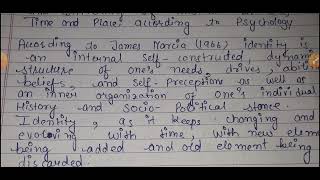 Time and Place, according to Psychology
According to James Marcia (1966) identity is
an internal self-constructed, dynamic
structure of one's needs, drives, abili
beliefs, and self-Preceptions as well as
an inner organization of one's individual
History and Socio-Political stance.
Identity, as it keeps changing and
evoloving with time, with new elem
being added and old element being
discarded.